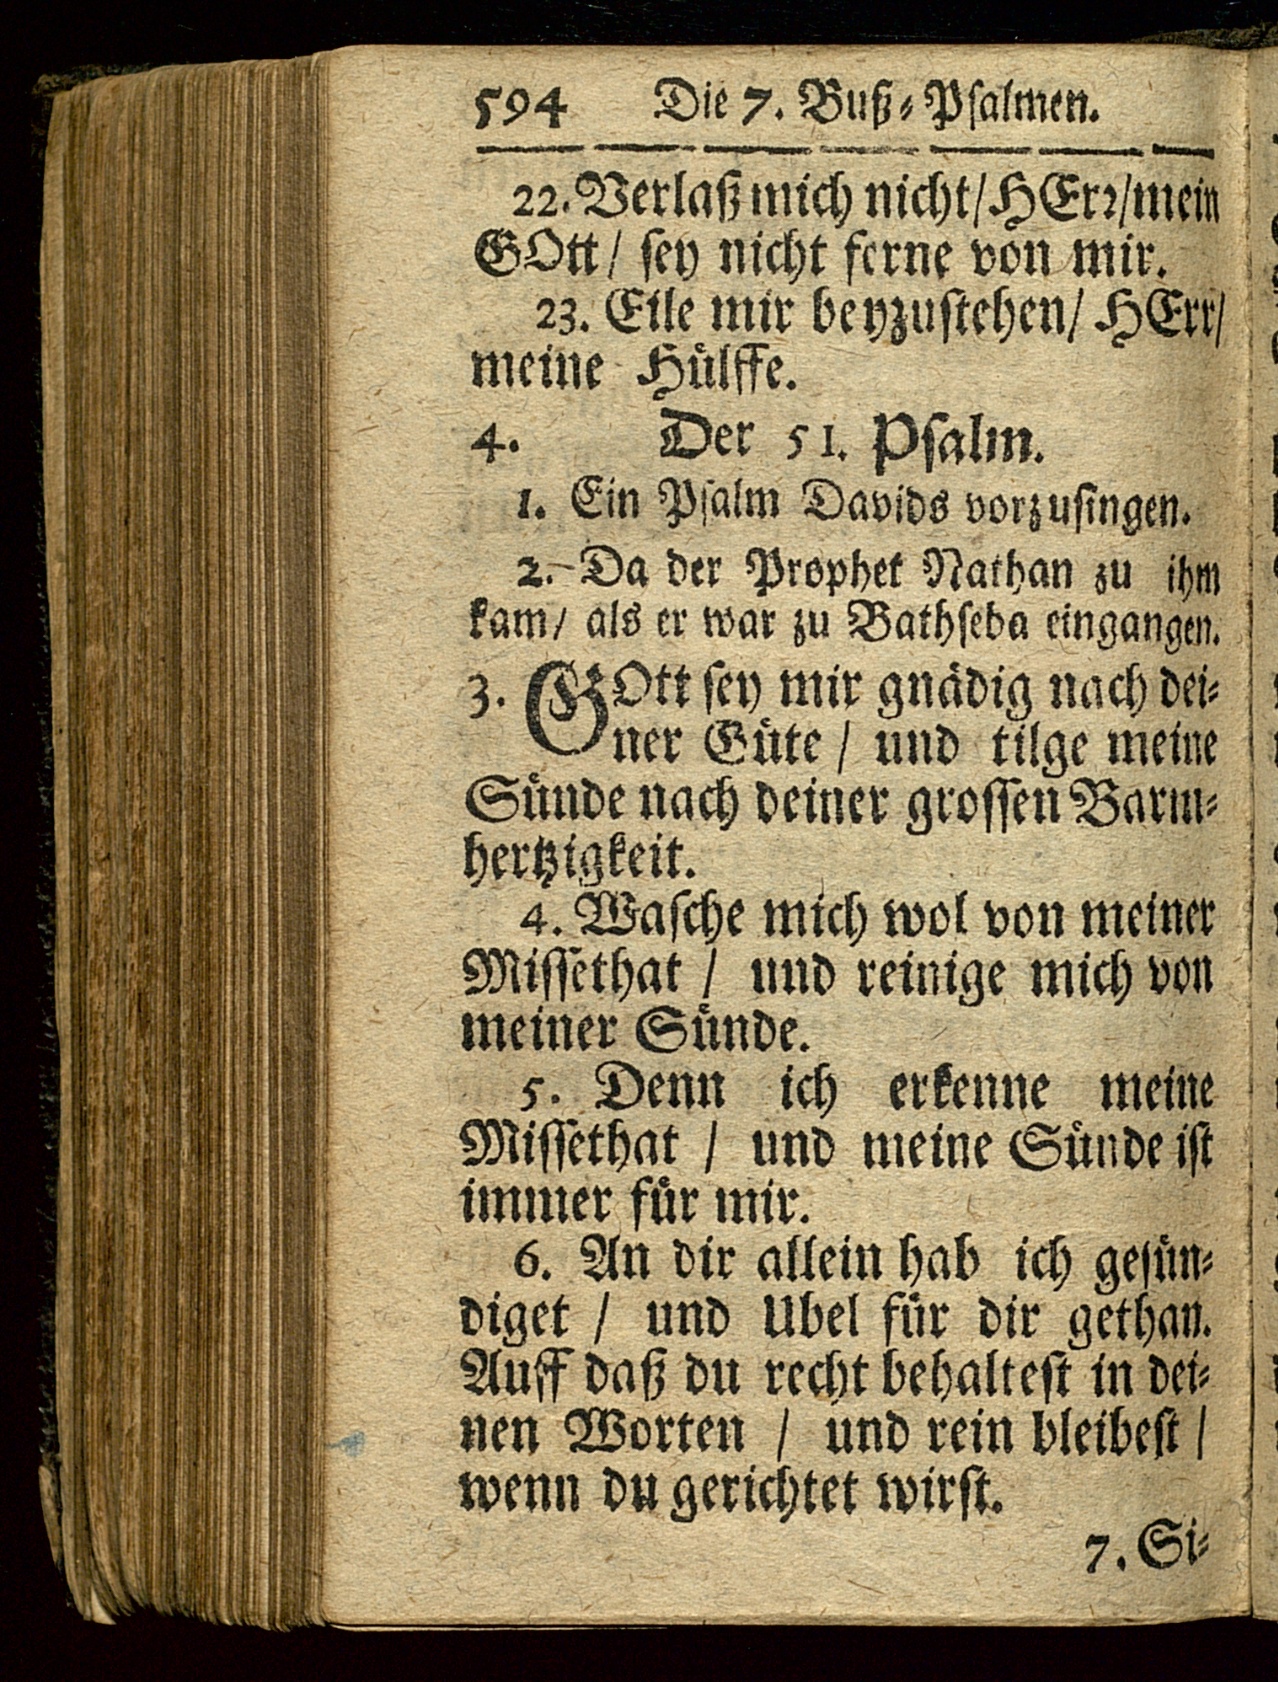 594 Die 7. Buß-Psalmen.
22. Verlaß mich nicht/HErꝛ/mein
GOtt/ sey nicht ferne von mir.
23. Eile mir beyzustehen/ HErr/
meine Hülffe.
4. Der 51. Psalm.
1. Ein Psalm Davids vorzusingen.
2. Da der Prophet Nathan zu ihm
kam/ als er war zu Bathseba eingangen.
3. GOtt sey mir gnädig nach dei-
ner Güte / und tilge meine
Sünde nach deiner grossen Barm-
hertzigkeit.
4. Wasche mich wol von meiner
Missethat / und reinige mich von
meiner Sünde.
5. Denn ich erkenne meine
Missethat / und meine Sünde ist
immer für mir.
6. An dir allein hab ich gesün-
diget / und Ubel für dir gethan.
Auff daß du recht behaltest in dei-
nen Worten / und rein bleibest /
wenn du gerichtet wirst.
7. Si-